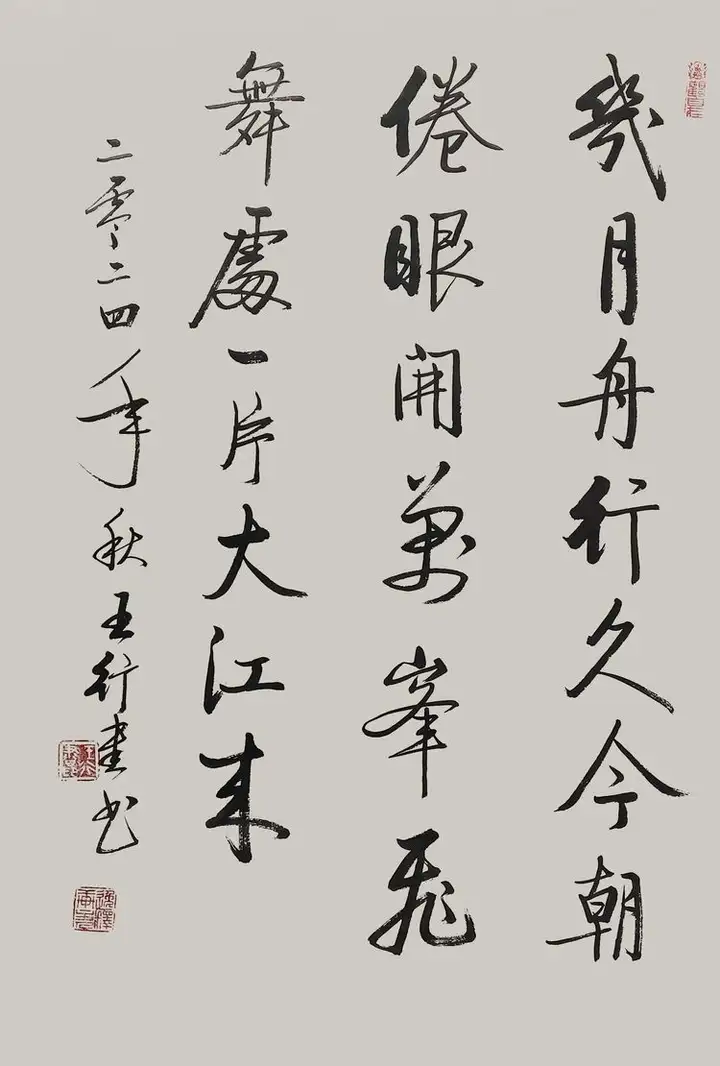 幾月舟行久今朝
倦眼開萬峯飛
舞處一片大江来
二零二四年秋王行书